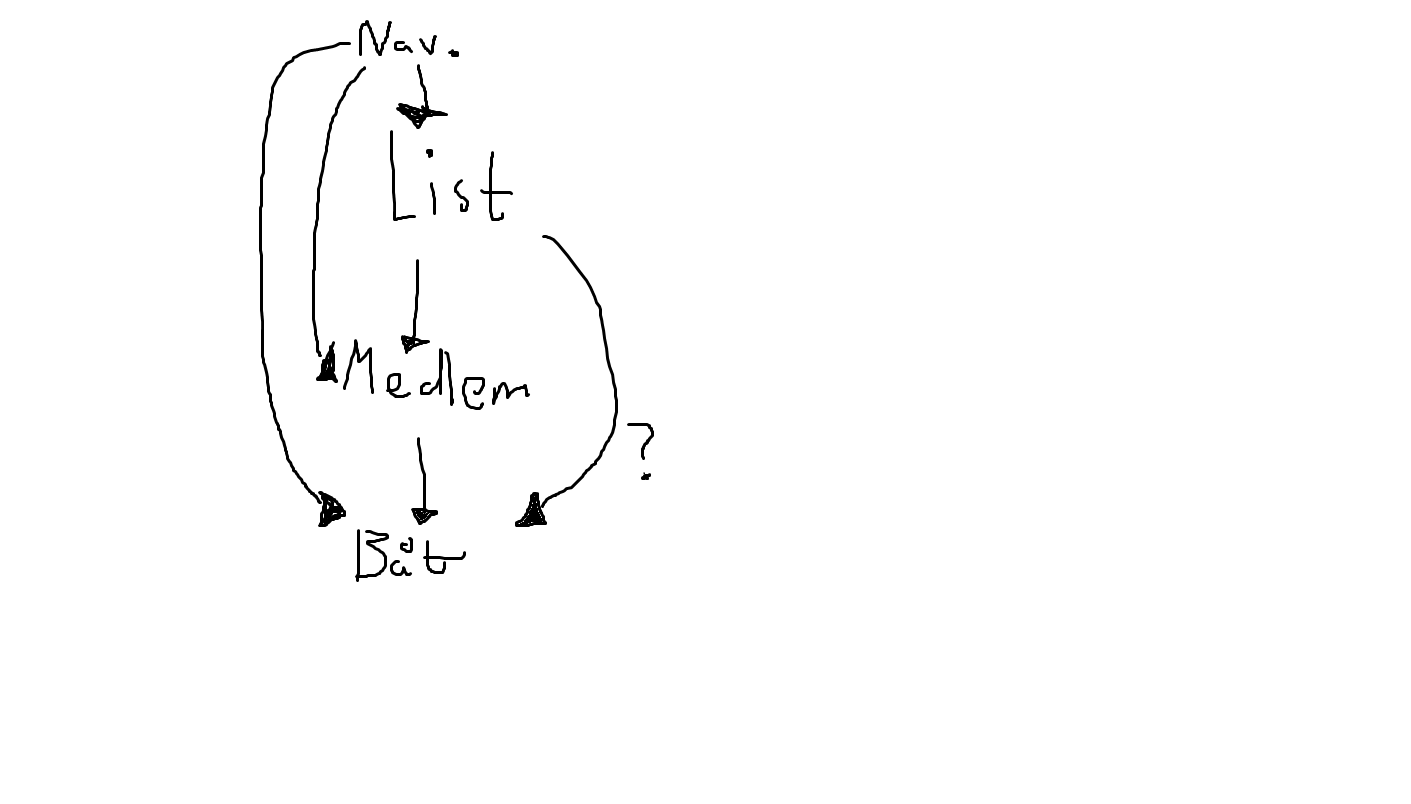 Nav.
List
Medlem
?
Båt